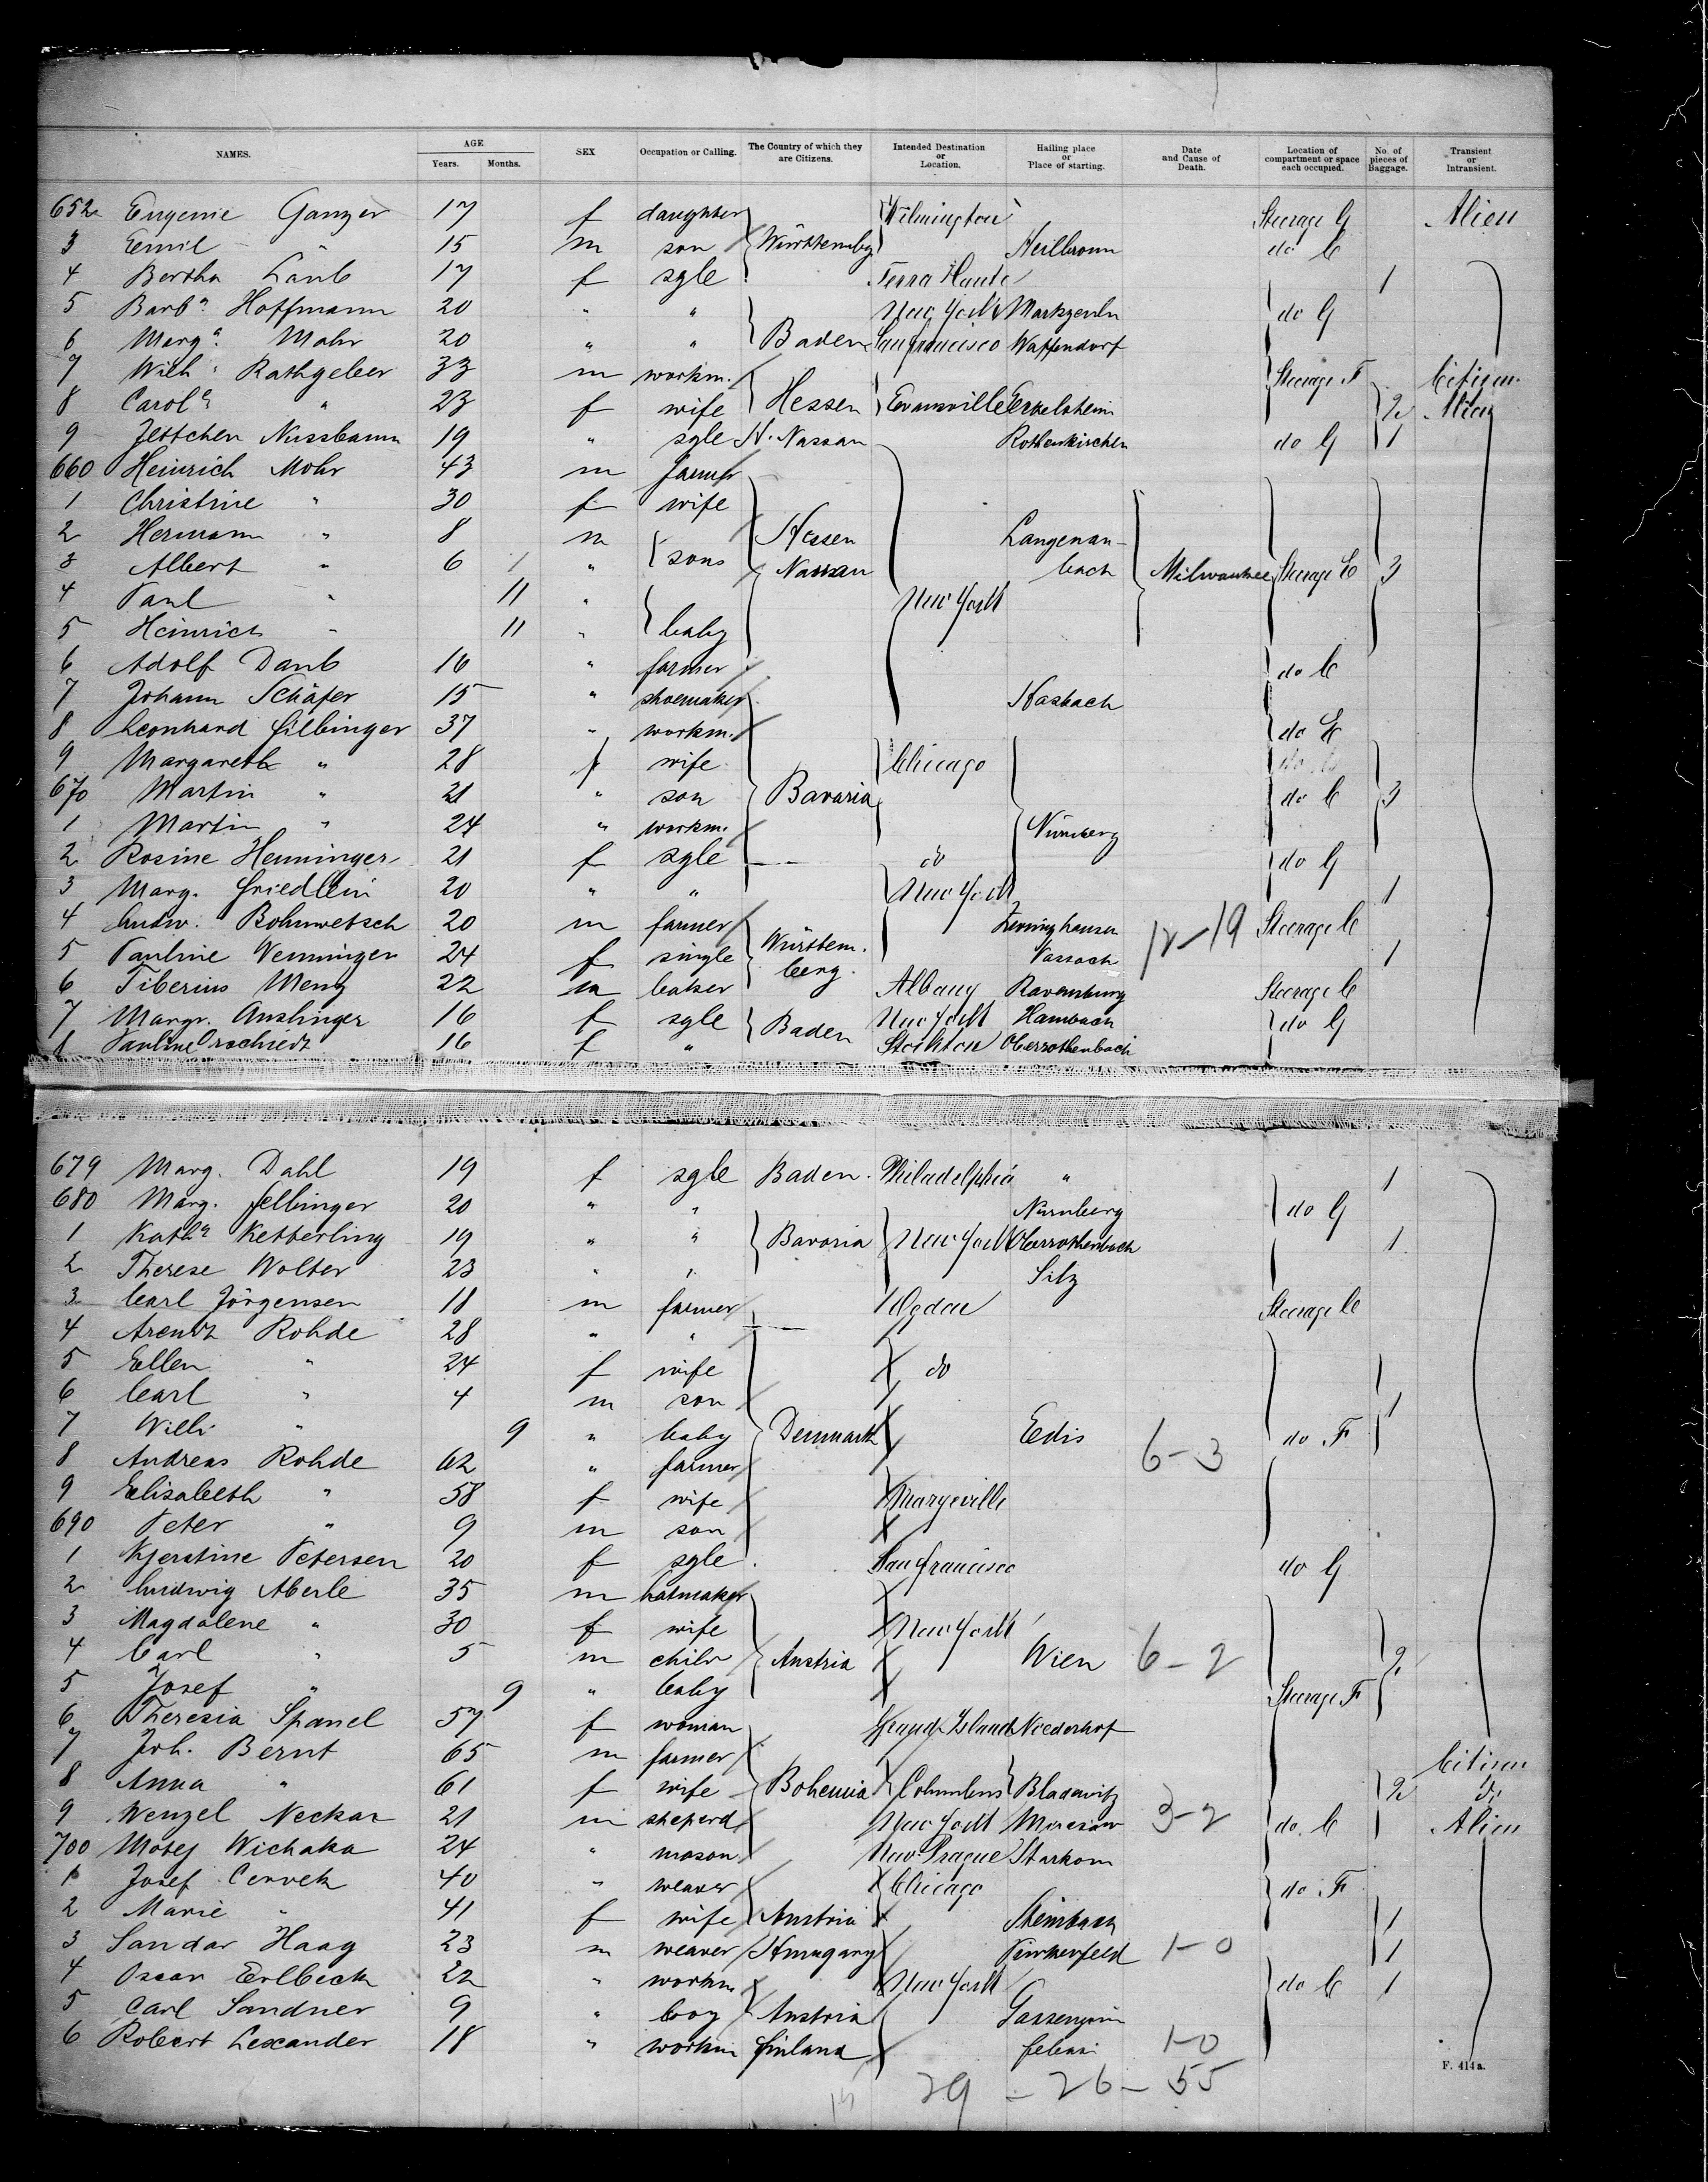 NAMES. AGE Years. Months. SEX Occupation or Calling. The Country of which they are Citizens. Intended Destination or Location. Hailing place or Place of starting. Date and Cause of Death. Location of compartment or space each occupied. No. of pieces of Baggage. Transient or Intransient.
652 Eugenie Ganzer 17 f daughter Wilmington Steerage G Alien
3 Emil " 15 m son Württembg Heilbronn do C
4 Bertha Laub 17 f sgle Terra Haute 1
5 Barba Hoffmann 20 " " New York do G
6 Marga Mohr 20 " " Baden San francisco Waffendorf
7 Wilh. Rathgeber 33 m workm. Steerage F Citizen
8 Carole " 23 f wife Hessen Evansville 2 Alien
9 Jettchen Nussbaum 19 " sgle H. Nassau Rothenkirchen do G 1
660 Heinrich Mohr 43 m farmer
1 Christine " 30 f wife
2 Hermann " 8 m Hessen Langenau-
3 Albert " 6 " sons Nassau bach Milwaukee Steerage C 3
4 Paul " 11 " New York
5 Heinrich " 11 " baby
6 Adolf Daub 16 " farmer do C
7 Johann Schäfer 15 " shoemaker Hasbach
8 Leonhard fillbinger 37 " workm. do
9 Margareth " 28 f wife Chicago
670 Martin " 21 " son Bavaria do C 3
1 Martin " 24 " workm. Nürnberg
2 Rosine Henninger 21 f sgle do do G
3 Marg. friedlein 20 " " New York 1
4 Ludw. Bohnwetsch 20 m farmer Württem- 12-19 Steerage C
5 Pauline Wenninger 24 f single berg. 1
6 Tiberius Meng 22 m baker Albany Ravensburg Steerage C
7 Margr. Anslinger 16 f sgle Baden New York Hambach do G
8 Pauline 16 f " Stockton Oberrothenbach
679 Marg. Dahl 19 f sgle Baden. Philadelphia " 1
680 Marg. fellbinger 20 " " Nürnberg do G
1 Katha Ketterling 19 " " Bavaria New York Oberrothenbach 1
2 Therese Wolter 23 " " Silz
3 Carl Jörgensen 18 m farmer Ogden Steerage C
4 Arentz Rohde 28 " "
5 Ellen " 24 f wife do
6 Carl " 4 m son 1
7 Willi " 9 " baby Denmark Edis 6-3 do F
8 Andreas Rohde 62 " farmer
9 Elisabeth " 58 f wife Marysville
690 Peter " 9 m son
1 Kjerstine Petersen 20 f sgle San francisco do G
2 Ludwig Aberle 35 m hatmaker
3 Magdalene " 30 f wife New York
4 Carl " 5 m child Austria Wien 6-2 2
5 Josef " 9 " baby Steerage F
6 Theresia Spanel 57 f woman Grand Island Neederhof
7 Joh. Bernt 65 m farmer Citizen
8 Anna " 61 f wife Bohemia Columbus Bladowitz 2 do
9 Wenzel Neckar 21 m sheperd New York 3-2 do C Alien
700 Matej Wichaka 24 " mason New Prague Starkow
1 Josef Cervek 40 " weaver Chicago do F
2 Marie " 41 f wife Austria Steinbach 1
3 Sandor Haag 23 m weaver Hungary 1-0 1
4 Oscar Erlbeck 22 " workm New York do C 1
5 Carl Sandner 9 " boy Austria
6 Robert Lexander 18 " workm finland 1-0
29 - 26 - 55
F. 414 a.